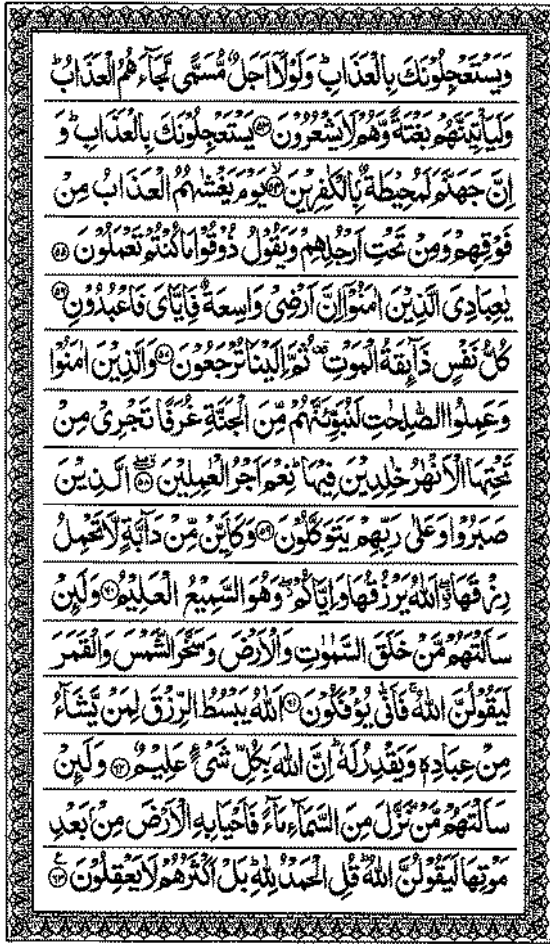 وَيَسْتَعْجِلُوْنَكَ بِالْعَذَابِ ؕ وَلَوْلَاۤ اَجَلٌ مُّسَمًّى لَّجَآءَهُمُ الْعَذَابُ ؕ
وَلَيَاْتِيَنَّهُمْ بَغْتَةً وَّهُمْ لَا يَشْعُرُوْنَ ﴿۵۳﴾ يَسْتَعْجِلُوْنَكَ بِالْعَذَابِ ؕ وَ
اِنَّ جَهَنَّمَ لَمُحِيْطَةٌۢ بِالْكٰفِرِيْنَ ﴿ۙ۵۴﴾ يَوْمَ يَغْشٰىهُمُ الْعَذَابُ مِنْ
فَوْقِهِمْ وَمِنْ تَحْتِ اَرْجُلِهِمْ وَيَقُوْلُ ذُوْقُوْا مَا كُنْتُمْ تَعْمَلُوْنَ ﴿۵۵﴾
يٰعِبَادِىَ الَّذِيْنَ اٰمَنُوْۤا اِنَّ اَرْضِىْ وَاسِعَةٌ فَاِيَّاىَ فَاعْبُدُوْنِ ﴿۵۶﴾
كُلُّ نَفْسٍ ذَآئِقَةُ الْمَوْتِ ثُمَّ اِلَيْنَا تُرْجَعُوْنَ ﴿۵۷﴾ وَالَّذِيْنَ اٰمَنُوْا
وَعَمِلُوا الصّٰلِحٰتِ لَنُبَوِّئَنَّهُمْ مِّنَ الْجَنَّةِ غُرَفًا تَجْرِىْ مِنْ
تَحْتِهَا الْاَنْهٰرُ خٰلِدِيْنَ فِيْهَا ؕ نِعْمَ اَجْرُ الْعٰمِلِيْنَ ﴿۵۸﴾ الَّذِيْنَ
صَبَرُوْا وَعَلٰى رَبِّهِمْ يَتَوَكَّلُوْنَ ﴿۵۹﴾ وَكَاَيِّنْ مِّنْ دَآبَّةٍ لَّا تَحْمِلُ
رِزْقَهَا ۖ اَللّٰهُ يَرْزُقُهَا وَاِيَّاكُمْ ۖ وَهُوَ السَّمِيْعُ الْعَلِيْمُ ﴿۶۰﴾ وَلَئِنْ
سَاَلْتَهُمْ مَّنْ خَلَقَ السَّمٰوٰتِ وَالْاَرْضَ وَسَخَّرَ الشَّمْسَ وَالْقَمَرَ
لَيَقُوْلُنَّ اللّٰهُ ۚ فَاَنّٰى يُؤْفَكُوْنَ ﴿۶۱﴾ اَللّٰهُ يَبْسُطُ الرِّزْقَ لِمَنْ يَّشَآءُ
مِنْ عِبَادِهٖ وَيَقْدِرُ لَهٗ ؕ اِنَّ اللّٰهَ بِكُلِّ شَىْءٍ عَلِيْمٌ ﴿۶۲﴾ وَلَئِنْ
سَاَلْتَهُمْ مَّنْ نَّزَّلَ مِنَ السَّمَآءِ مَآءً فَاَحْيَا بِهِ الْاَرْضَ مِنْۢ بَعْدِ
مَوْتِهَا لَيَقُوْلُنَّ اللّٰهُ ؕ قُلِ الْحَمْدُ لِلّٰهِ ؕ بَلْ اَكْثَرُهُمْ لَا يَعْقِلُوْنَ ﴿۶۳﴾